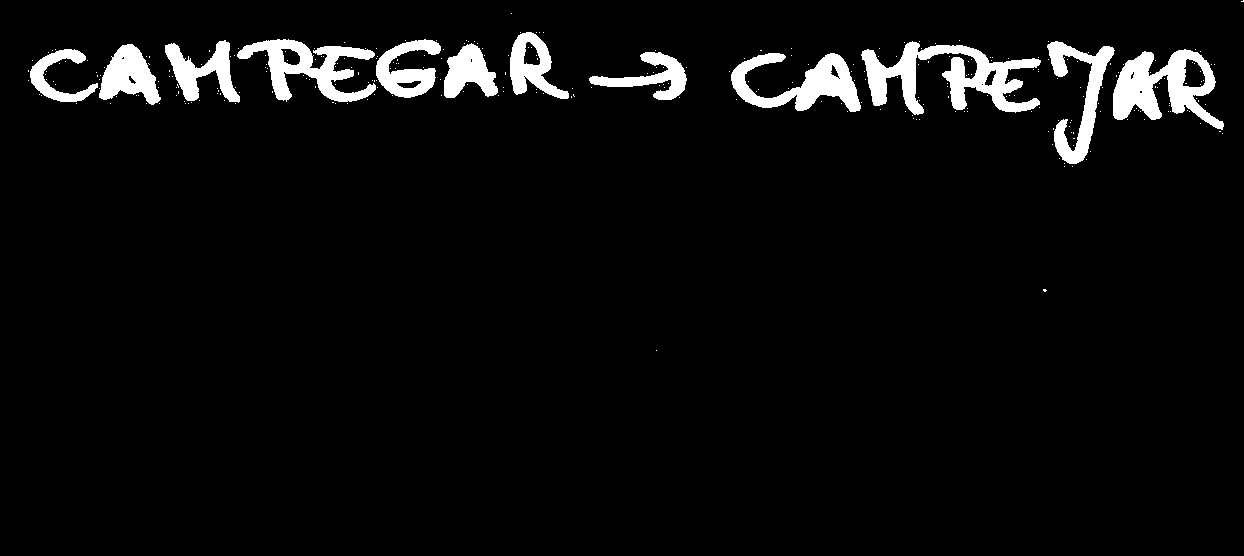 CAMPEGAR → CAMPEJAR